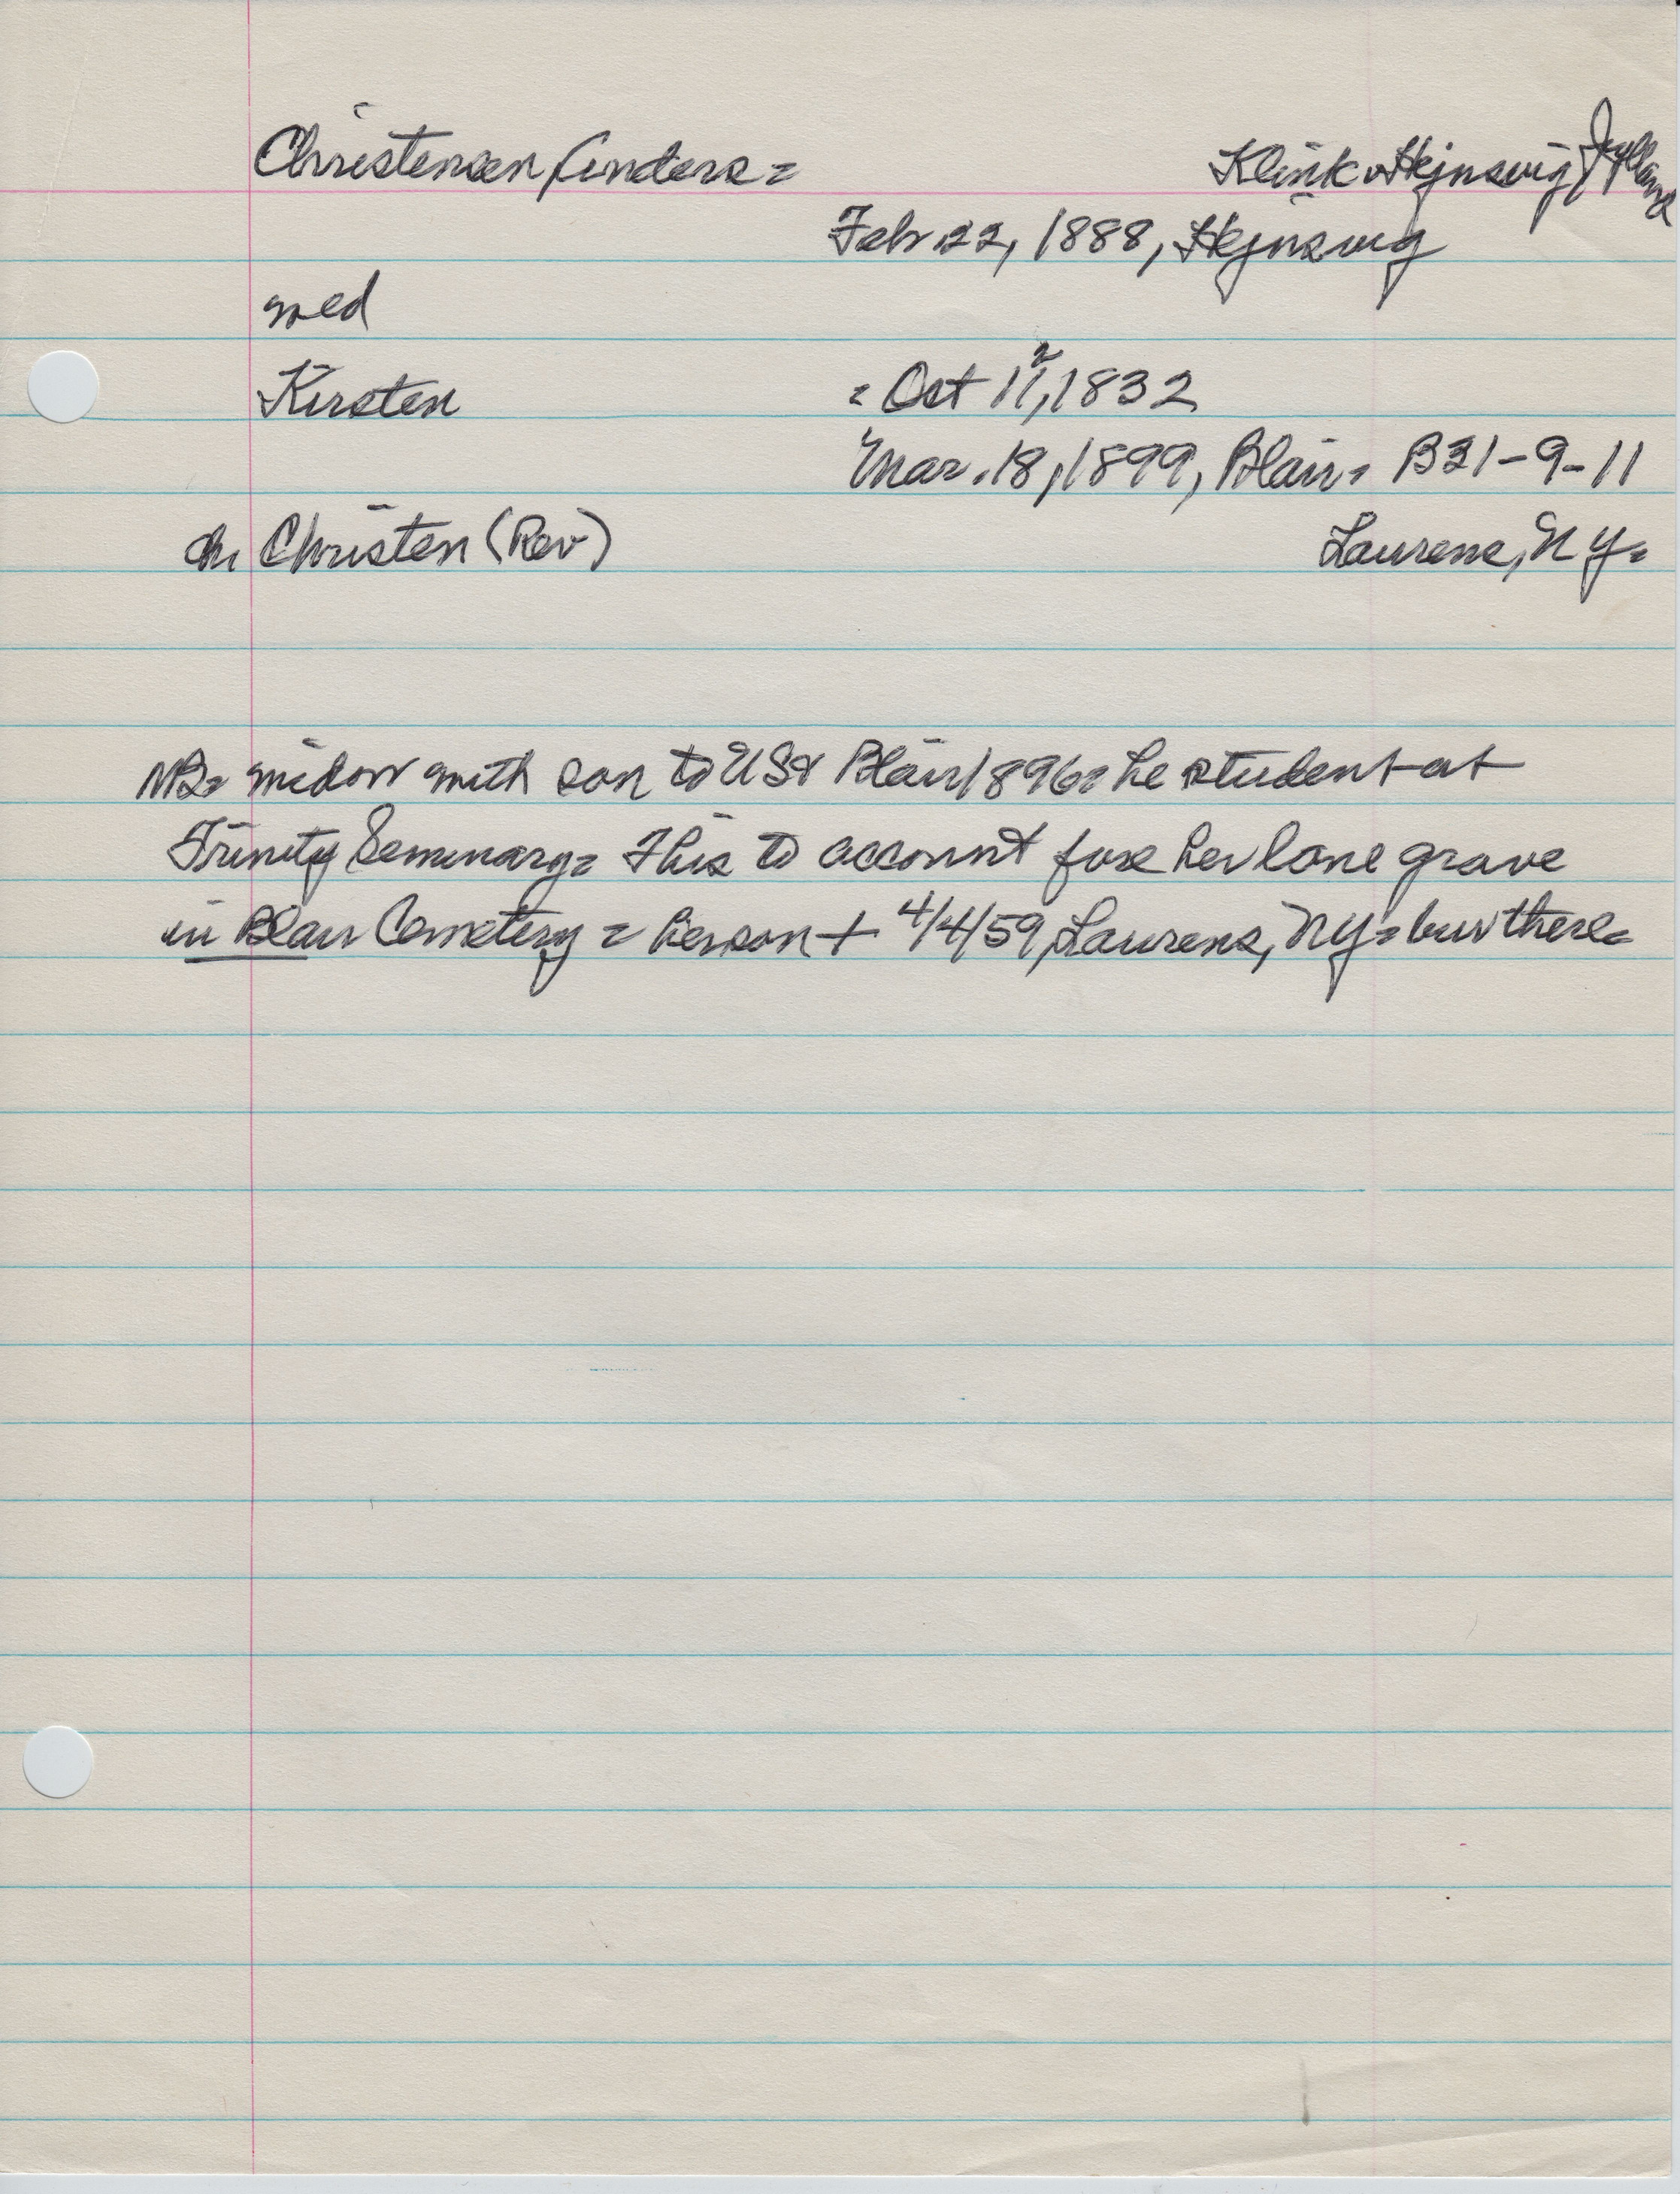 Christensen Anders = Klink Hejnsvig Jylland
Feb 22, 1888, Hejnsvig
wed
Kirsten = Oct 12, 1832
Mar. 18, 1899, Blair = B21-9-11
ch Christen (Rev) Laurens, NY =
NB = widow with son to US & Blair 1896 = he student at
Trinity Seminary = This to account for her lone grave
in Blair Cemetery = her son + 4/4/59, Laurens, NY = bur there =